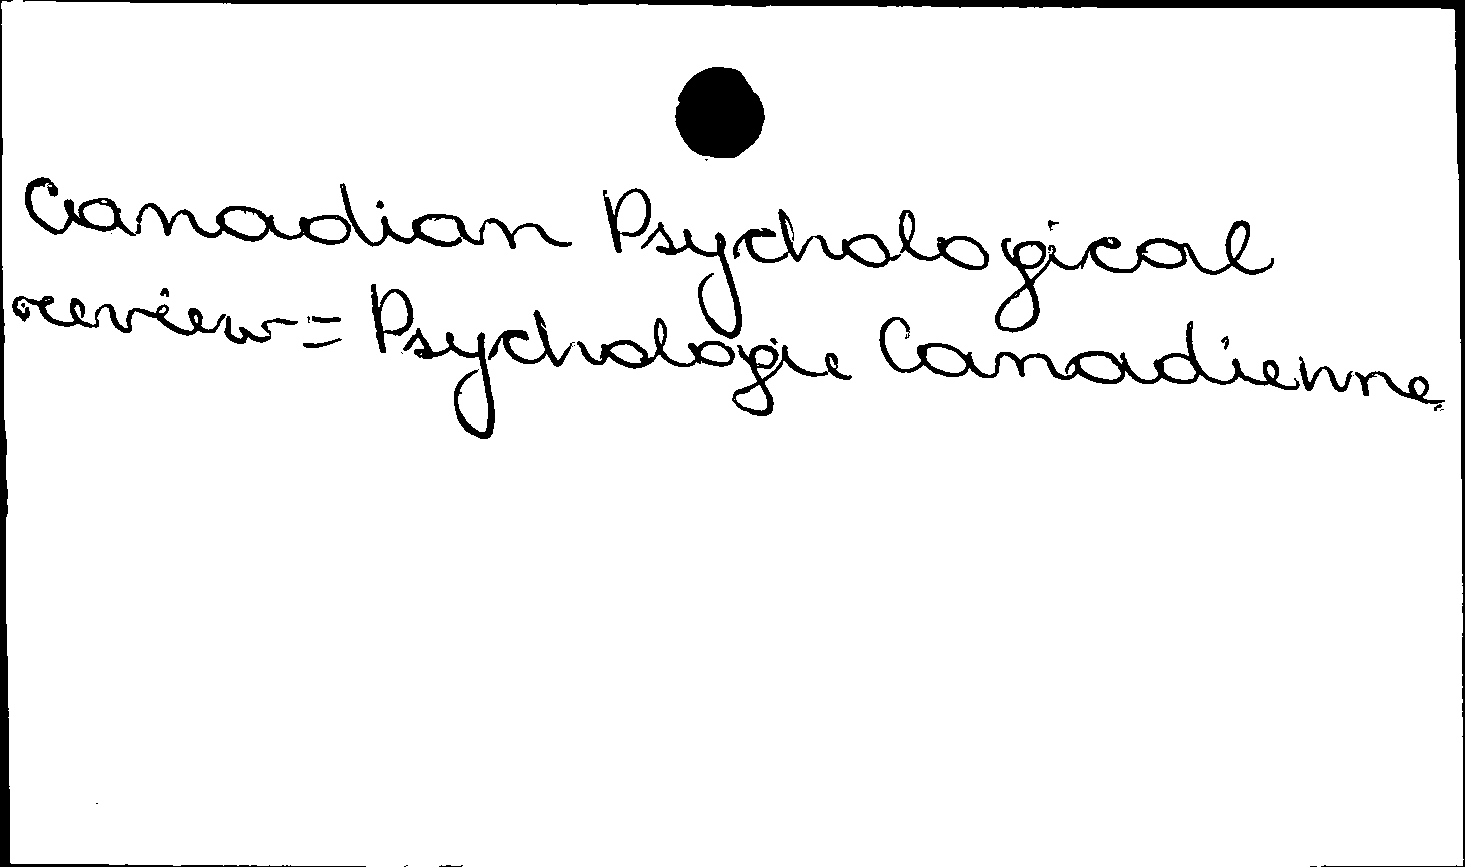 Canadian Psychological
review = Psychologie Canadienne